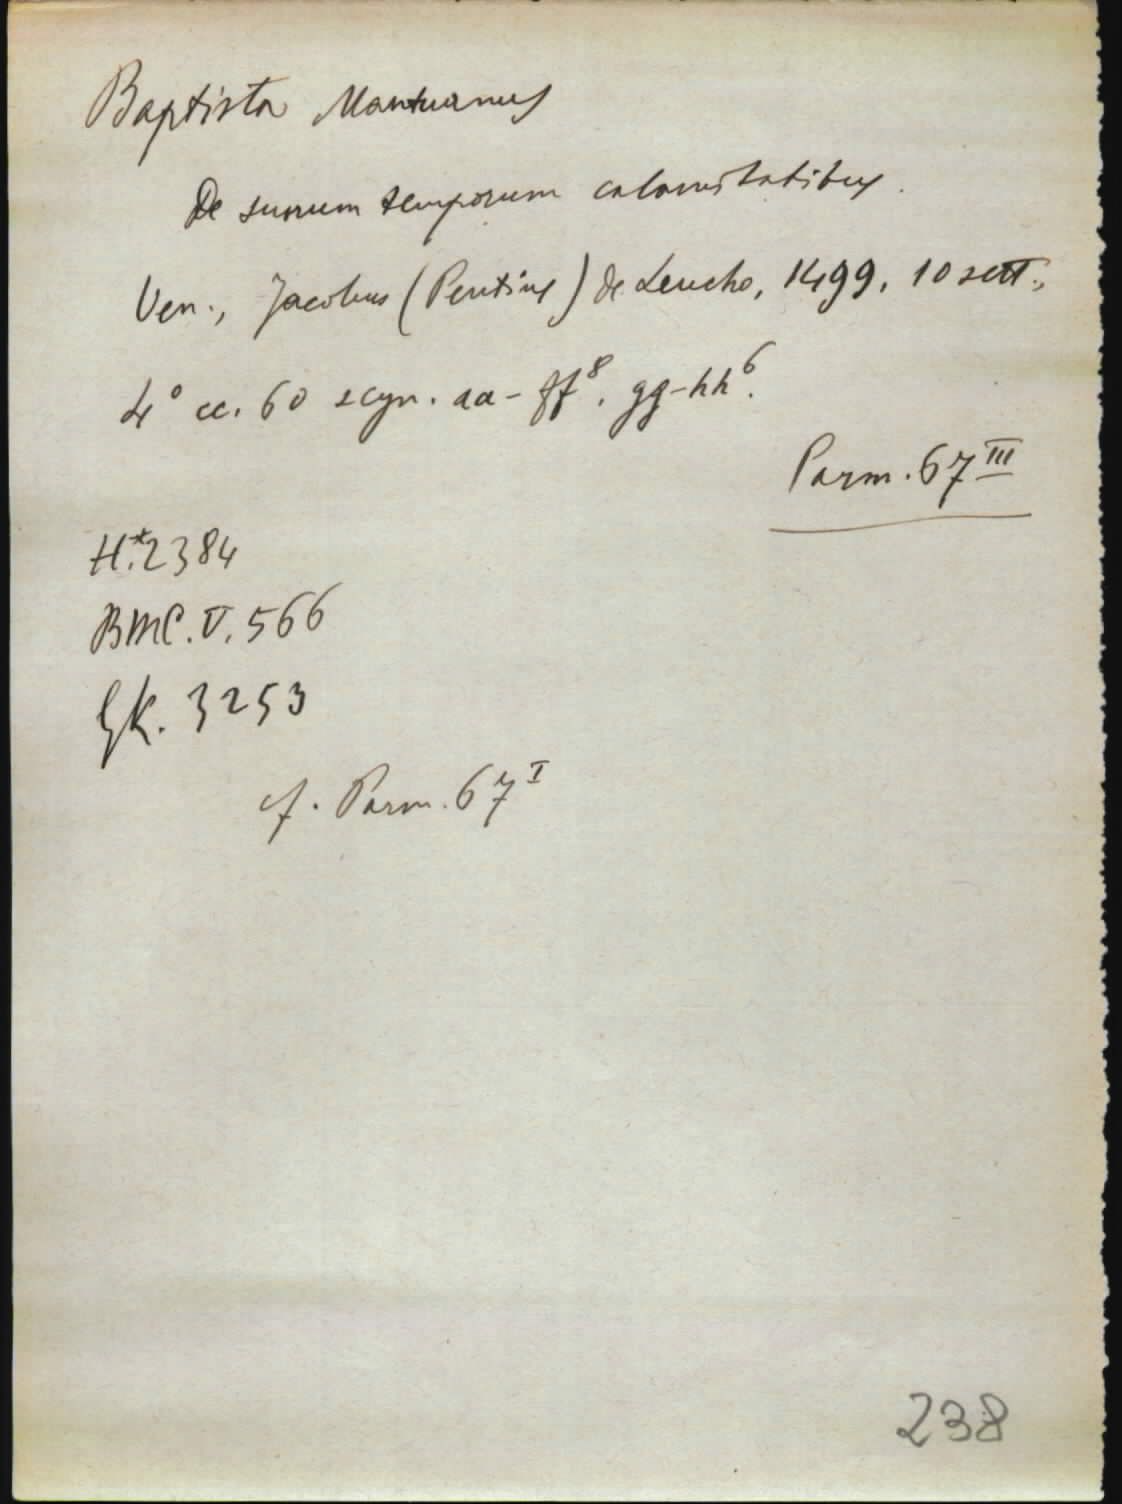 Baptista Mantuanus
De suorum temporum calamitatibus.
Ven., Jacobus (Pentius) de Leucho, 1499, 10 sett.,
4° cc. 60 segn. aa-ff⁸, gg-hh⁶.
Parm. 67 III
H.*2384
BMC. V. 566
GK. 3253
cf. Parm. 67 I
238